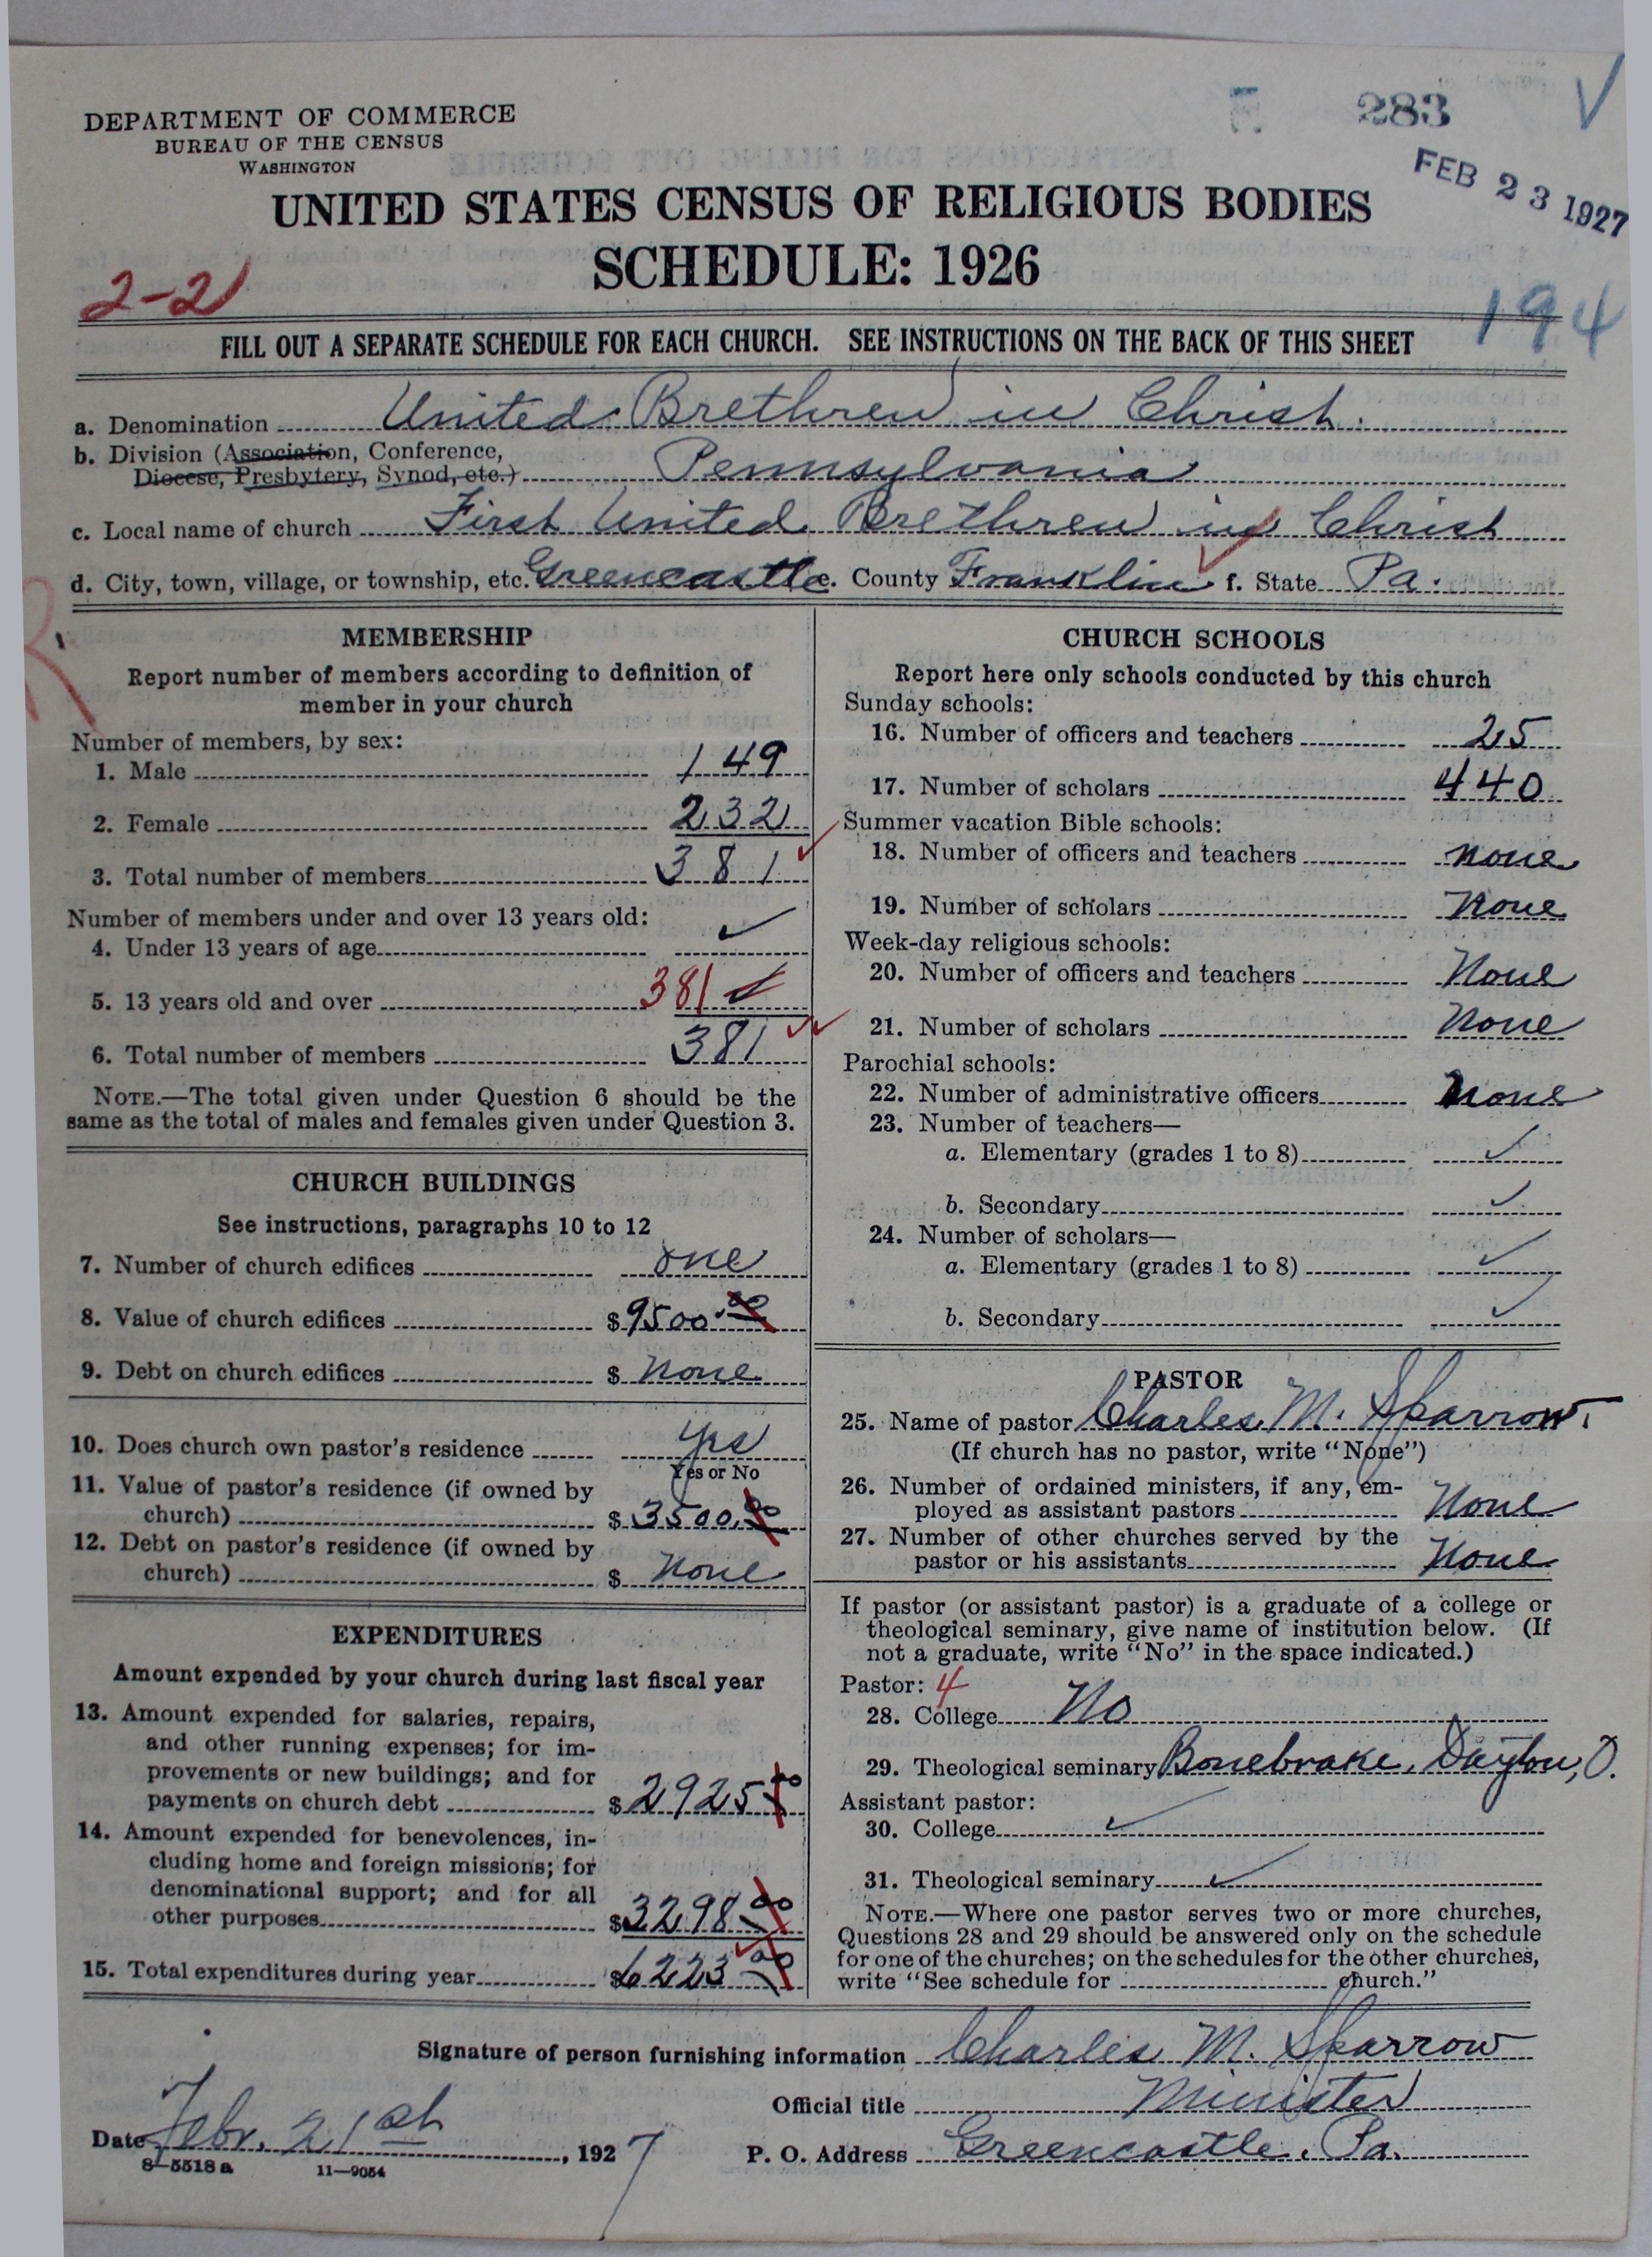 283
V
DEPARTMENT OF COMMERCE
BUREAU OF THE CENSUS
WASHINGTON
FEB 23 1927
UNITED STATES CENSUS OF RELIGIOUS BODIES
SCHEDULE: 1926
2-21
194
FILL OUT A SEPARATE SCHEDULE FOR EACH CHURCH. SEE INSTRUCTIONS ON THE BACK OF THIS SHEET
a. Denomination United Brethren in Christ.
b. Division (Association, Conference,
Diocese, Presbytery, Synod, etc.) Pennsylvania
c. Local name of church First United Brethren in Christ
d. City, town, village, or township, etc. Greencastle e. County Franklin f. State Pa.
R
MEMBERSHIP
Report number of members according to definition of
member in your church
Number of members, by sex:
1. Male 149
2. Female 232
3. Total number of members 381 ✓
Number of members under and over 13 years old:
4. Under 13 years of age ✓
5. 13 years old and over 381 ✓
6. Total number of members 381 ✓✓
NOTE.—The total given under Question 6 should be the
same as the total of males and females given under Question 3.
CHURCH BUILDINGS
See instructions, paragraphs 10 to 12
7. Number of church edifices one
8. Value of church edifices $9500.00
9. Debt on church edifices $ none
10. Does church own pastor's residence yes
Yes or No
11. Value of pastor's residence (if owned by
church) $3500.00
12. Debt on pastor's residence (if owned by
church) $ none
EXPENDITURES
Amount expended by your church during last fiscal year
13. Amount expended for salaries, repairs,
and other running expenses; for im-
provements or new buildings; and for
payments on church debt $2925.00
14. Amount expended for benevolences, in-
cluding home and foreign missions; for
denominational support; and for all
other purposes $3298.00
15. Total expenditures during year $6223.00
CHURCH SCHOOLS
Report here only schools conducted by this church
Sunday schools:
16. Number of officers and teachers 25
17. Number of scholars 440
Summer vacation Bible schools:
18. Number of officers and teachers none
19. Number of scholars None
Week-day religious schools:
20. Number of officers and teachers None
21. Number of scholars None
Parochial schools:
22. Number of administrative officers None
23. Number of teachers—
a. Elementary (grades 1 to 8) ✓
b. Secondary ✓
24. Number of scholars—
a. Elementary (grades 1 to 8) ✓
b. Secondary ✓
PASTOR
25. Name of pastor Charles M. Sparrow.
(If church has no pastor, write "None")
26. Number of ordained ministers, if any, em-
ployed as assistant pastors None
27. Number of other churches served by the
pastor or his assistants None
If pastor (or assistant pastor) is a graduate of a college or
theological seminary, give name of institution below. (If
not a graduate, write "No" in the space indicated.)
Pastor: 4
28. College No
29. Theological seminary Bonebrake, Dayton, O.
Assistant pastor:
30. College ✓
31. Theological seminary ✓
NOTE.—Where one pastor serves two or more churches,
Questions 28 and 29 should be answered only on the schedule
for one of the churches; on the schedules for the other churches,
write "See schedule for church."
Signature of person furnishing information Charles M. Sparrow
Official title Minister
Date Febr. 21st, 1927
P. O. Address Greencastle, Pa.
8-5518 a 11-9054